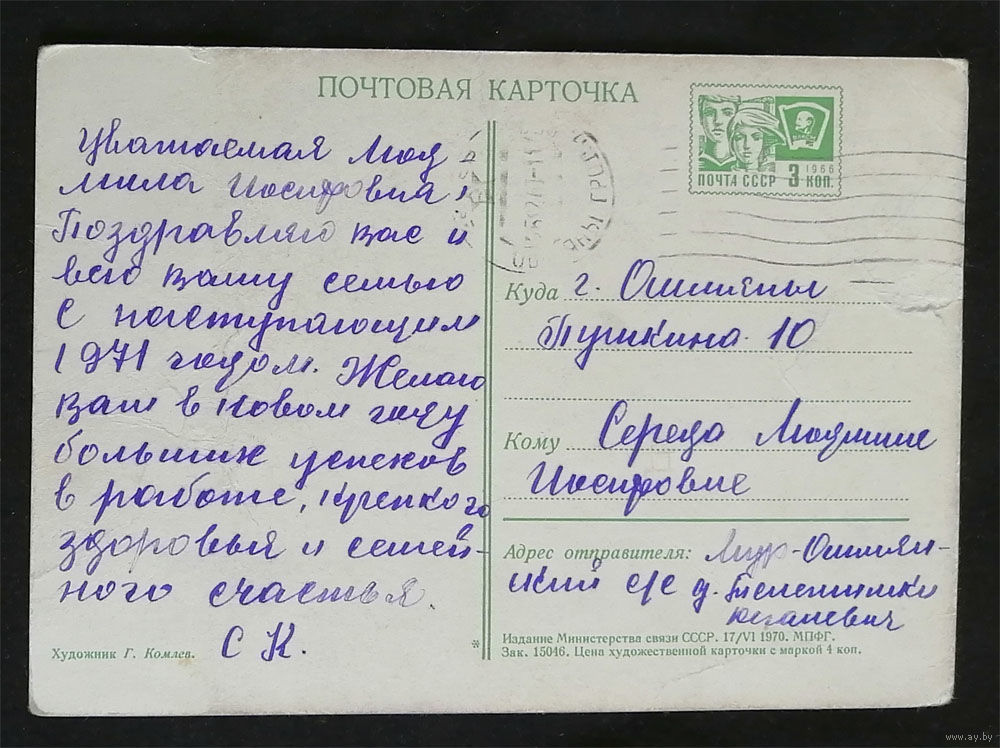 ПОЧТОВАЯ КАРТОЧКА
ПОЧТА СССР 3 КОП.
1966
Уважаемая Люд
мила Иосифовна!
Поздравляю вас и
всю вашу семью
С наступающим
1971 годом. Желаю
вам в новом году
больших успехов
в работе, крепкого
здоровья и семей-
ного счастья.
С К.
Художник Г. Комлев.
Куда г. Ошмяны
Пушкина 10
Кому Середа Людмиле
Иосифовне
Адрес отправителя: Ошмян-
ский с/с д.
*
Издание Министерства связи СССР. 17/VI 1970. МПФГ.
Зак. 15046. Цена художественной карточки с маркой 4 коп.
www.ay.by